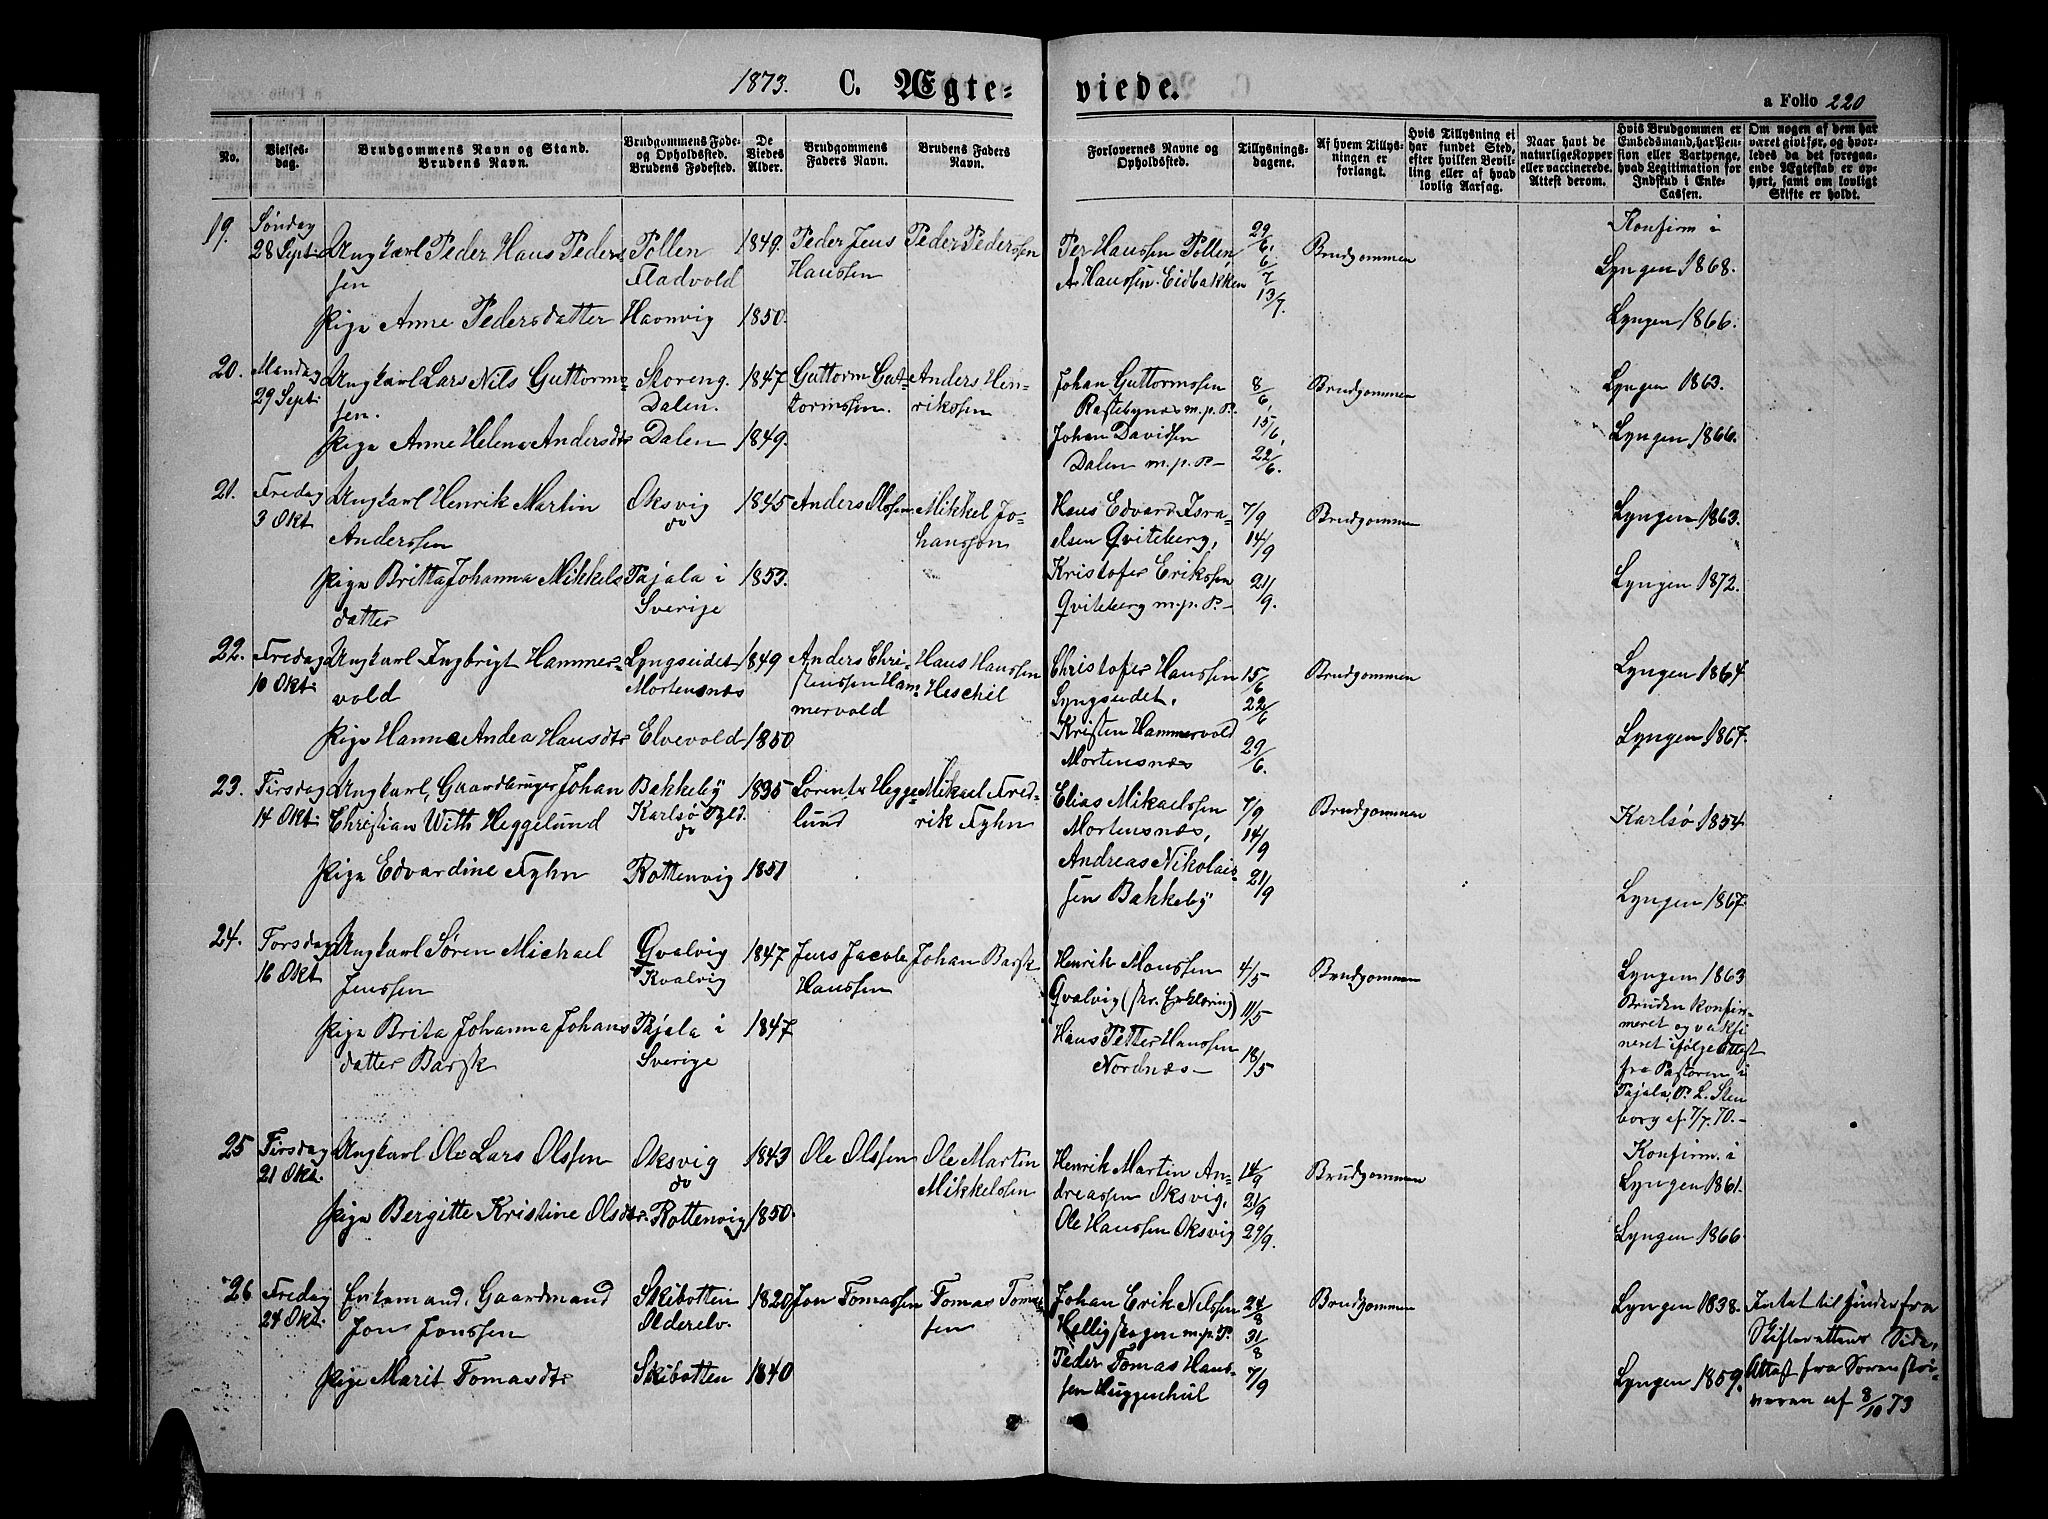 1873. C. Ægte-
viede.
a Folio 220
No.
Vielses-
dag.
Brudgommens Navn og Stand.
Brudens Navn.
Brudgommens Føde-
og Opholdssted.
Brudens Fødested.
De
Viedes
Alder.
Brudgommens
Faders Navn.
Brudens Faders
Navn.
Forlovernes Navne og
Opholdssted.
Tillysnings-
dagene.
Af hvem Tillys-
ningen er
forlangt.
Hvis Tillysning ei
har fundet Sted,
efter hvilken Bevil-
ling eller af hvad
lovlig Aarsag.
Naar havt de
naturlige Kopper
eller vaccinerede.
Attest derom.
Hvis Brudgommen er
Embedsmand, har Pen-
sion eller Vartpenge,
hvad Legitimation for
Indskud i Enke-
Cassen.
Om nogen af dem har
været givt før, og hvor-
ledes da det foregaa-
ende Ægteskab er op-
hørt, samt om lovligt
Skifte er holdt.
19.
Søndag
28 Sept.
Ungkarl Peder Hans Peders
sen
Pige Anne Pedersdatter
Pollen
Fladvold
Havnvig
1849.
1850.
Peder Jens
Hanssen
Peder Pederssen
Per Hanssen Pollen,
A. Hanssen Eidbakken
29/6.
6/7
13/7.
Brudgommen
Konfirm i
Lyngen 1868.
Lyngen 1866.
20.
Mandag
29 Sept.
Ungkarl Lars Nils Guttorms
sen.
Pige Anne Helena Andersdtr
Storeng.
Dalen.
Dalen
1847
1849.
Guttorm Gut-
tormssen.
Anders Hen-
rikssen
Johan Guttormssen
Rastebynes m.p.P.
Johan Davidsen
Dalen m.p.P-
8/6,
15/6,
22/6.
Brudgommen
Lyngen 1863.
Lyngen 1866.
21.
Fredag
3 Okt
Ungkarl Henrik Martin
Anderssen
Pige Britta Johanna Mikkels
datter
Oksvig
do
Pajala i
Sverige
1845
1853.
Anders Olssen
Mikkel Jo-
hansson
Hans Edvard Isra-
elsen Qviteberg,
Kristofer Erikssen
Qviteberg m.p.P.-
7/9
14/9
21/9.
Brudgommen
Lyngen 1863.
Lyngen 1872.
22.
Fredag
10 Okt.
Ungkarl Ingbrigt Hammer-
vold
Pige Hanne Andea Hansdtr
Lyngseidet
Mortensnæs
Elvevold
1849
1850
Anders Chri-
stenssen Ham-
mervold
Hans Hanssen
Heschil
Christofer Hanssen
Lyngseidet.
Kristen Hammervold
Mortensnæs
15/6
22/6
29/6.
Brudgommen
Lyngen 1864.
Lyngen 1867.
23.
Tirsdag
14 Okt.
Ungkarl, Gaardbruger Johan
Christian With Heggelund
Pige Edvardine Fyhn
Bakkeby
Karlsø Pgld.
do
Rottenvig
1835
1851
Lorents Hegge-
lund
Mikael Fred-
rik Fyhn
Elias Mikaelssen
Mortensnæs,
Andreas Nikolais-
sen Bakkeby
7/9
14/9
21/9
Brudgommen
Karlsø 1854.
Lyngen 1867.
24.
Torsdag
16 Okt
Ungkarl Søren Michael
Jenssen
Pige Brita Johanna Johans
datter Barsk
Qvalvig
Kvalvig
Pajala i
Sverige
1847
1847
Jens Jacob
Hanssen
Johan Barsk
Henrik Monssen
Qvalvig (skr. Erklæring)
Hans Petter Hanssen
Nordnæs-
4/5
11/5
18/5
Brudgommen
Lyngen 1863
Bruden konfir-
meret og vaksi-
neret ifølge Attest
fra Pastoren i
Pajala, P. L. Sten
borg af 7/7. 70.-
25
Tirsdag
21 Okt.
Ungkarl Ole Lars Olssen
Pige Bergitte Kristine Olsdtr.
Oksvig
do
Rottenvig
1843
1850.
Ole Olssen
Ole Martin
Mikkelssen
Henrik Martin An-
dreassen Oksvig,
Ole Hanssen Oksvig
14/9
21/9
29/9.
Brudgommen
Konfirm. i
Lyngen 1861.
Lyngen 1866.
26
Fredag
24 Okt.
Enkemand, Gaardmand
Jon Jonssen
Pige Marit Tomasdtr
Skibotten
Olderelv.
Skibotten
1820
1840
Jon Tomassen
Tomas Tomas-
sen
Johan Erik Nilssen
Helligskogen m.p.P.
Peder Tomas Hans-
sen
24/8
31/8
7/9
Brudgommen
Lyngen 1838.
Lyngen 1859.
Intet til Hinder fra
Skifterettens Side,
Attest fra Sorenskri-
veren af 8/10 73